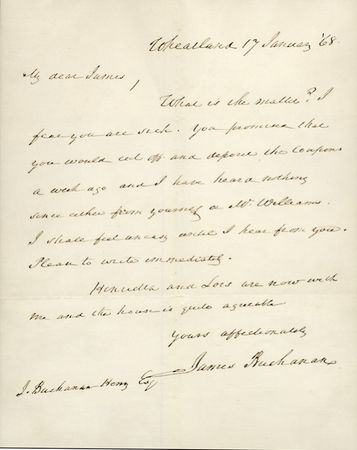 Wheatland 17 January '68.
My dear James,
What is the matter? I
fear you are sick. You promised that
you would cut off and deposit the Coupons
a week ago and I have heard nothing
since either from yourself or Mr Williams.
I shall feel uneasy until I hear from you.
Please to write immediately.
Henrietta and Lois are now with
me and the house is quite agreeable
Yours affectionately
James Buchanan
J. Buchanan Henry Esq